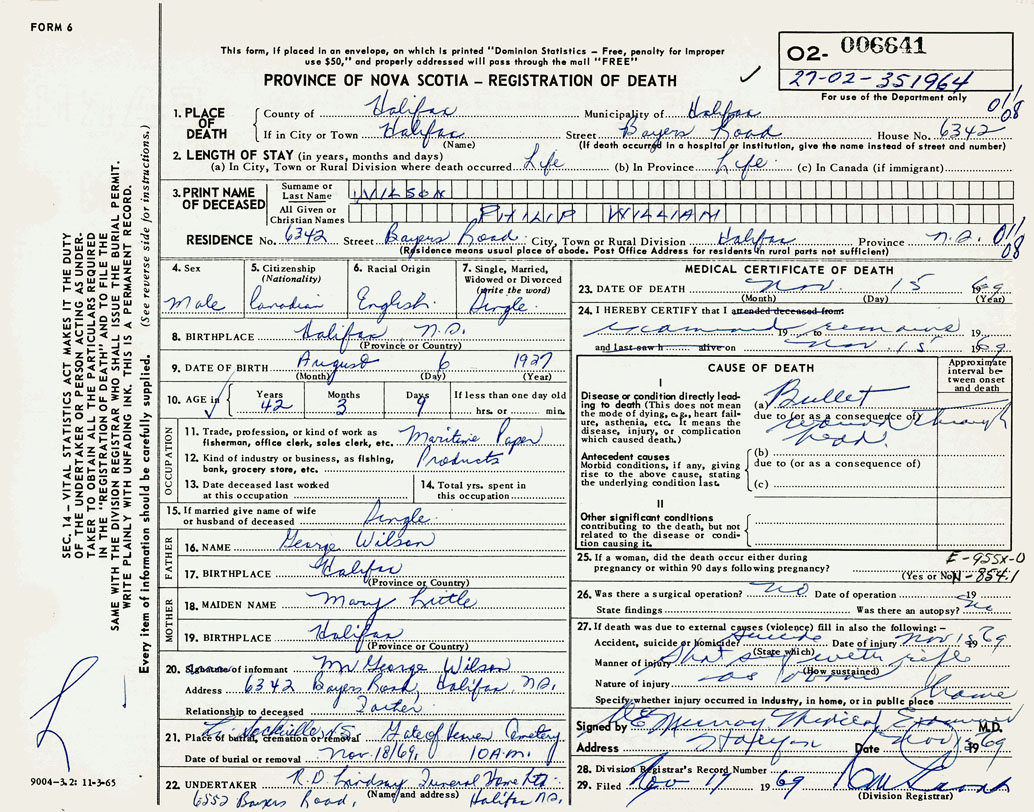 FORM 6
This form, if placed in an envelope, on which is printed "Dominion Statistics – Free, penalty for improper
use $50," and properly addressed will pass through the mail "FREE"
PROVINCE OF NOVA SCOTIA – REGISTRATION OF DEATH
O2- 006641
27-02-351964
For use of the Department only
011
08
1. PLACE OF DEATH
County of Halifax Municipality of Halifax
If in City or Town Halifax Street Bayers Road House No. 6342
(Name) (If death occurred in a hospital or institution, give the name instead of street and number)
2. LENGTH OF STAY (in years, months and days)
(a) In City, Town or Rural Division where death occurred Life (b) In Province Life (c) In Canada (if immigrant)
3. PRINT NAME OF DECEASED
Surname or Last Name WILSON
All Given or Christian Names PHILIP WILLIAM
RESIDENCE No. 6342 Street Bayers Road City, Town or Rural Division Halifax Province N.S. 011
(Residence means usual place of abode. Post Office Address for residents in rural parts not sufficient) 08
4. Sex
Male
5. Citizenship
(Nationality)
Canadian
6. Racial Origin
English
7. Single, Married,
Widowed or Divorced
(write the word)
Single
8. BIRTHPLACE Halifax N.S.
(Province or Country)
9. DATE OF BIRTH August 6 1927
(Month) (Day) (Year)
10. AGE in Years Months Days If less than one day old
42 3 9 hrs. or min.
OCCUPATION
11. Trade, profession, or kind of work as
fisherman, office clerk, sales clerk, etc. Maritime Paper
12. Kind of industry or business, as fishing, Products
bank, grocery store, etc.
13. Date deceased last worked
at this occupation
14. Total yrs. spent in
this occupation
15. If married give name of wife
or husband of deceased Single
FATHER
16. NAME George Wilson
17. BIRTHPLACE Halifax
(Province or Country)
MOTHER
18. MAIDEN NAME Mary Little
19. BIRTHPLACE Halifax
(Province or Country)
20. Signature of informant Mr George Wilson
Address 6342 Bayers Road, Halifax, N.S.
Relationship to deceased Father
21. Place of burial, cremation or removal Sackville N.S. Gate of Heaven Cemetery
Date of burial or removal Nov. 18/69, 10 A.M.
22. UNDERTAKER R.D. Lindsay Funeral Home Ltd.
(Name and address)
6552 Bayers Road, Halifax N.S.
MEDICAL CERTIFICATE OF DEATH
23. DATE OF DEATH Nov. 15 1969
(Month) (Day) (Year)
24. I HEREBY CERTIFY that I attended deceased from:
examined 19 to remains 19
and last saw h alive on Nov. 15 1969
CAUSE OF DEATH
Approximate
interval be-
tween onset
and death
I
Disease or condition directly lead-
ing to death (This does not
mean the mode of dying, e.g., heart fail-
ure, asthenia, etc. It means the
disease, injury, or complication
which caused death.)
(a) Bullet
due to (or as a consequence of)
wound through
head
Antecedent causes
Morbid conditions, if any, giving
rise to the above cause, stating
the underlying condition last.
(b)
due to (or as a consequence of)
(c)
II
Other significant conditions
contributing to the death, but not
related to the disease or condi-
tion causing it.
25. If a woman, did the death occur either during
pregnancy or within 90 days following pregnancy?
(Yes or No)
E-955X-0
N-854.1
26. Was there a surgical operation? No Date of operation 19
State findings Was there an autopsy? No
27. If death was due to external causes (violence) fill in also the following:–
Accident, suicide or homicide? Suicide Date of injury Nov 15 1969
(State which)
Manner of injury Shot self with rifle
(How sustained)
Nature of injury as above
Specify whether injury occurred in Industry, in home, or in public place home
Signed by Murray Medical Examiner M.D.
Address Halifax Date Nov 1969
28. Division Registrar's Record Number
29. Filed Nov 17 1969
(Division Registrar)
SEC. 14 – VITAL STATISTICS ACT MAKES IT THE DUTY
OF THE UNDERTAKER OR PERSON ACTING AS UNDER-
TAKER TO OBTAIN ALL THE PARTICULARS REQUIRED
IN THE "REGISTRATION OF DEATH" AND TO FILE THE
SAME WITH THE DIVISION REGISTRAR WHO SHALL ISSUE THE BURIAL PERMIT.
WRITE PLAINLY WITH UNFADING INK. THIS IS A PERMANENT RECORD.
Every item of information should be carefully supplied. (See reverse side for instructions.)
9004-3.2: 11-3-65